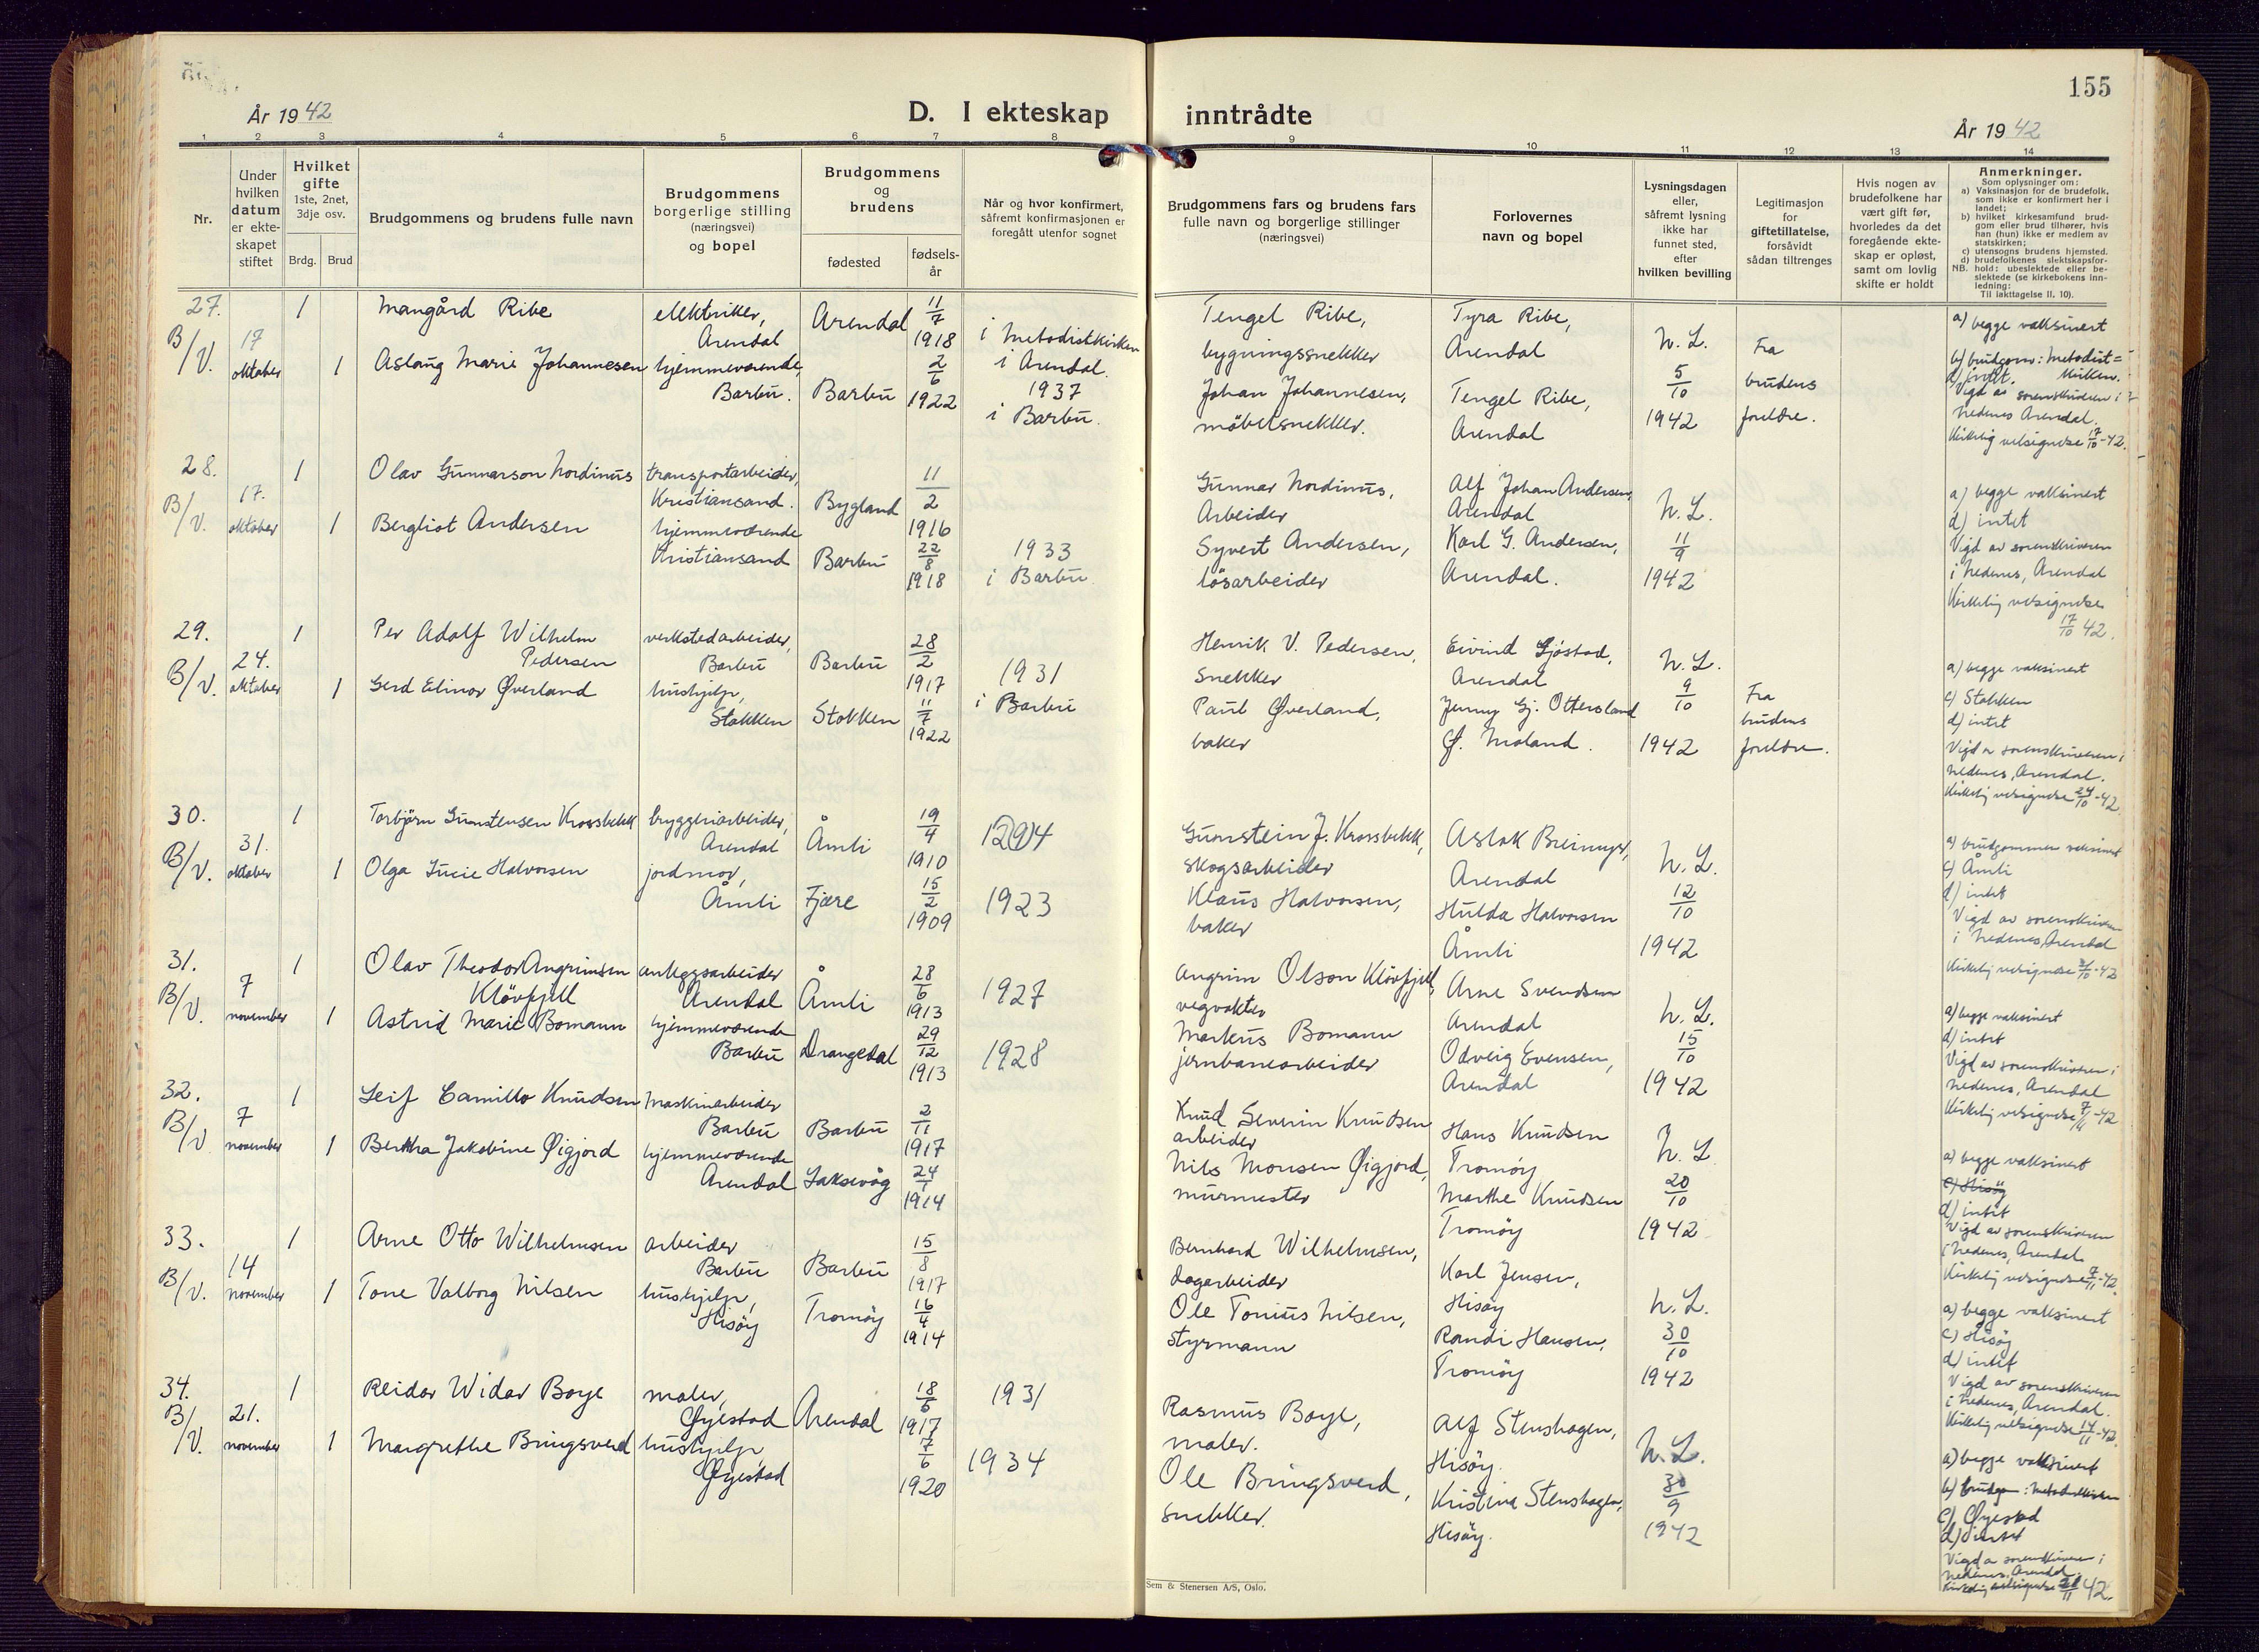 155
År 1942
D. I ekteskap inntrådte
År 1942
1 2 3 4 5 6 7 8 9 10 11 12 13 14
Nr.
Under hvilken datum er ekteskapet stiftet
Hvilket gifte 1ste, 2net, 3dje osv.
Brdg. Brud
Brudgommens og brudens fulle navn
Brudgommens borgerlige stilling (næringsvei) og bopel
Brudgommens og brudens
fødested
fødsels-år
Når og hvor konfirmert, såfremt konfirmasjonen er foregått utenfor sognet
Brudgommens fars og brudens fars fulle navn og borgerlige stillinger (næringsvei)
Forlovernes navn og bopel
Lysningsdagen eller, såfremt lysning ikke har funnet sted, efter hvilken bevilling
Legitimasjon for giftetillatelse, forsåvidt sådan tiltrenges
Hvis nogen av brudefolkene har vært gift før, hvorledes da det foregående ekteskap er opløst, samt om lovlig skifte er holdt
Anmerkninger.
Som oplysninger om:
a) Vaksinasjon for de brudefolk, som ikke er konfirmert her i landet;
b) hvilket kirkesamfund brudgom eller brud tilhører, hvis han (hun) ikke er medlem av statskirken;
c) utensogns brudens hjemsted.
d) brudefolkenes slektskapsforhold: ubeslektede eller beslektede (se kirkebokens innledning:
NB. Til iakttagelse II, 10).
27. B/V. 17 oktober
1 Mangård Ribe elektriker, Arendal Arendal 11/7 1918 i Metodistkirken i Arendal.
1 Aslaug Marie Johannesen hjemmeværende, Barbu. Barbu 2/6 1922 1937 i Barbu.
Tengel Ribe, bygningssnekker
Johan Johannesen, möbelsnekker.
Tyra Ribe, Arendal
Tengel Ribe, Arendal
h. L. 5/10 1942
Fra brudens foreldre.
a) begge vaksinert
b) brudgom: Metodist=kirken.
d) intet.
Vigd av sorenskriveren i
Nedenes Arendal.
Kirkelig velsignelse 17/10-42.
28. B/V. 17. oktober
1 Olav Gunnarson Nordinus transportarbeider, Kristiansand. Bygland 11/2 1916
1 Bergliot Andersen hjemmeværende Kristiansand Barbu 22/8 1918 1933 i Barbu.
Gunnar Nordinus, Arbeider
Syvert Andersen, lösarbeider
Alf Johan Andersen, Arendal
Karl G. Andersen, Arendal.
h. L. 11/9 1942
a) begge vaksinert
d) intet
Vigd av sorenskriveren
i Nedenes, Arendal
Kirkelig velsignelse
17/10 42.
29. B/V. 24. oktober
1 Per Adolf Wilhelm Pedersen verkstedarbeider, Barbu Barbu 28/2 1917 1931 i Barbu
1 Gerd Elinor Øverland hushjelp, Stokken Stokken 11/7 1922
Henrik V. Pedersen, snekker
Paul Øverland, baker
Eivind Sjöstad, Arendal
Jenny Gj. Ottersland Ø. Moland.
h. L. 9/10 1942
Fra brudens foreldre.
a) begge vaksinert
c) Stokken
d) intet
Vigd av sorenskriveren i
Nedenes, Arendal.
Kirkelig velsignelse 24/10-42
30. B/V. 31. oktober
1 Torbjörn Gunstensen Krossbekk bryggeriarbeider, Arendal Åmli 19/4 1910 1294
1 Olga Lucie Halvorsen jordmor, Åmli Fjære 15/2 1909 1923
Gunstein J. Krossbekk, skogsarbeider
Klaus Halvorsen, baker
Aslak Breimyr, Arendal
Hulda Halvorsen Åmli
h. L. 12/10 1942
a) brudgommen vaksinert
c) Åmli
d) intet
Vigd av sorenskriveren
i Nedenes, Arendal
Kirkelig velsignelse 31/10-42
31. B/V. 7 november
1 Olav Theodor Angrimsen Klövfjell anleggsarbeider Arendal Åmli 28/6 1913 1927
1 Astrid Marie Bomann hjemmeværende Barbu Drangedal 29/12 1913 1928
Angrim Olson Klövfjell, vegvokter
Markus Bomann jernbanearbeider
Arne Svendsen Arendal
Odveig Evensen, Arendal
h. L. 15/10 1942
a) begge vaksinert
d) intet
Vigd av sorenskriveren i
Nedenes, Arendal
Kirkelig velsignelse 7/11-42
32. B/V 7 november
1 Leif Camillo Knudsen Maskinarbeider Barbu Barbu 2/11 1917
1 Bertha Jakobine Øigjord hjemmeværende Arendal Laksevåg 24/1 1914
Knud Severin Knudsen arbeider
Nils Monsen Øigjord, murmester
Hans Knudsen Tromöy
Marthe Knudsen Tromöy
h. L 20/10 1942
a) begge vaksinert
c) Hisöy
d) intet
Vigd av sorenskriveren
i Nedenes, Arendal
Kirkelig velsignelse 7/11-42.
33. B/V. 14 november
1 Arne Otto Wilhelmsen arbeider Barbu Barbu 15/8 1917
1 Tone Valborg Nilsen hushjelp, Hisöy Tromöy 16/4 1914
Bernhard Wilhelmsen, dagarbeider
Ole Tonius Nilsen, styrmann
Karl Jensen, Hisöy
Randi Hansen, Tromöy
h. L. 30/10 1942
a) begge vaksinert
c) Hisöy
d) intet
Vigd av sorenskriveren
i Nedenes, Arendal.
Kirkelig velsignelse 14/11-42.
34. B/V. 21. november
1 Reidar Widar Boye maler, Øyestad Arendal 18/6 1917 1931
1 Margrethe Bringsverd hushjelp, Øyestad 7/6 1920 1934
Rasmus Boye, maler.
Ole Bringsverd, snekker.
Alf Stenshagen, Hisöy.
Kristine Stenshagen, Hisöy.
h. L. 30/9 1942
a) begge vaksinert
b) brudgom: Metodistkirken
c) Øyestad
d) intet
Vigd av sorenskriveren i
Nedenes, Arendal.
Kirkelig velsignelse 21/11 42.
Sem & Stenersen A/S, Oslo.